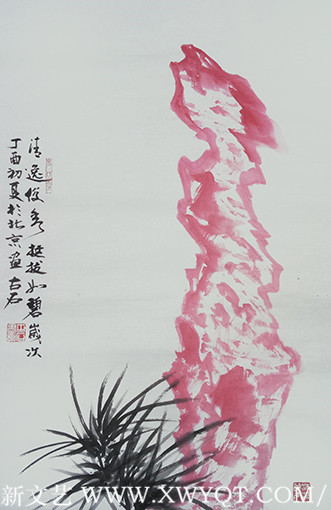 清逸俊秀挺拔如碧歲次
丁酉初夏於北京画古石
新文艺 WWW.XWYQT.COM/